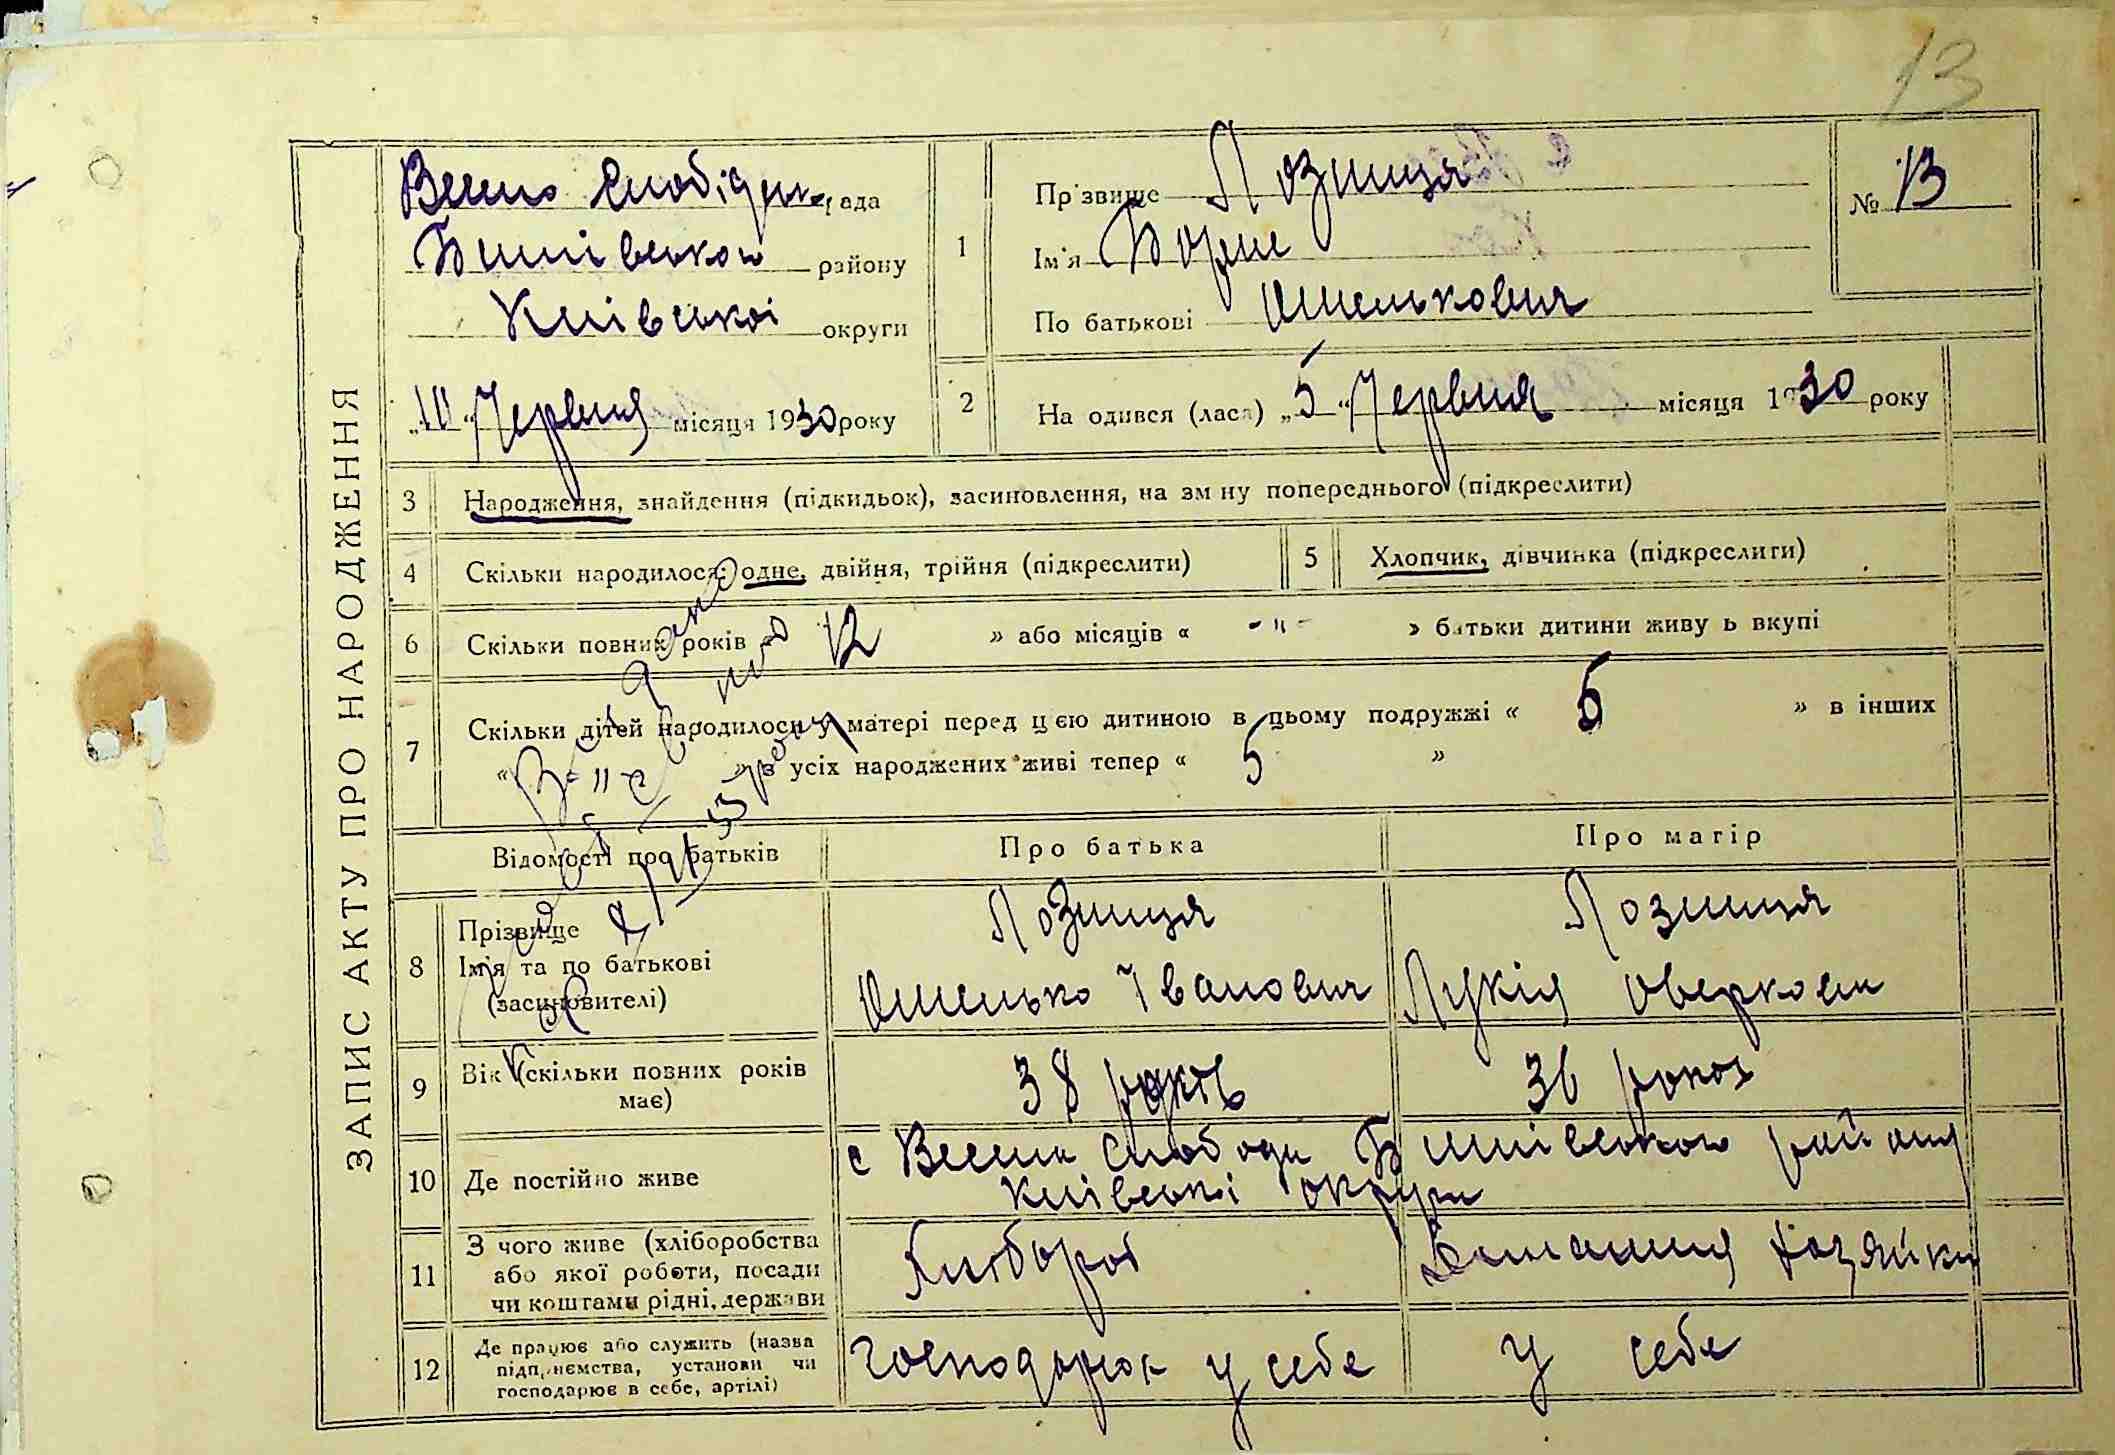 13
ЗАПИС АКТУ ПРО НАРОДЖЕННЯ
Весело Слобідська рада
Бишівського району
Київської округи
„10“ Червня місяця 1930 року
1
Прізвище Лозниця
Ім'я Борис
По батькові Омелькович
№ 13
2
На одився (лася) „5“ Червня місяця 1930 року
3 Народження, знайдення (підкидьок), засиновлення, на зм ну попереднього (підкреслити)
4 Скільки народилося: одне, двійня, трійня (підкреслити)
5 Хлопчик, дівчинка (підкреслити)
6 Скільки повних років « 12 » або місяців « -"- » батьки дитини живу ь вкупі
7 Скільки дітей народилося у матері перед цією дитиною в цьому подружжі « 5 » в інших
« -"- » з усіх народжених живі тепер « 5 »
Відомості про батьків
Про батька
Про матір
8 Прізвище
Ім'я та по батькові
(засиновителі)
Лозниця
Омелько Іванович
Лозниця
Лукія Оверковна
9 Вік (скільки повних років
має)
38 років
36 років
10 Де постійно живе
с Весела Слобода Бишівського района
Київської округи
11 З чого живе (хліборобства
або якої роботи, посади
чи коштами рідні, держави
Хлібороб
Домашня хазяйка
12 Де працює або служить (назва
підприємства, установи чи
господарює в себе, артілі)
господарює у себе
у себе